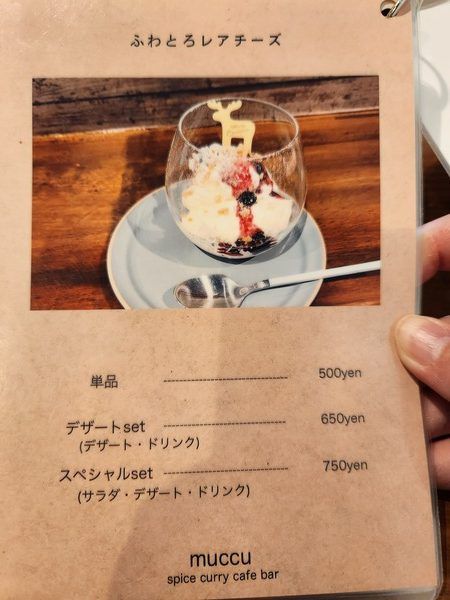 ふわとろレアチーズ
単品 500yen
デザートset 650yen
(デザート・ドリンク)
スペシャルset 750yen
(サラダ・デザート・ドリンク)
muccu
spice curry cafe bar